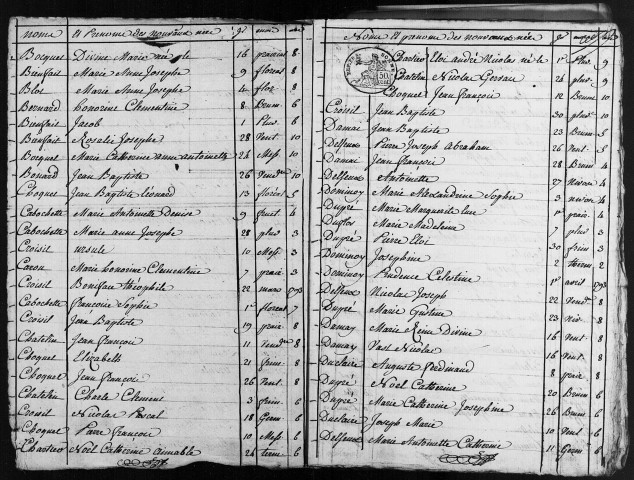 nome & Prenome des nouveaux née
Bocquet Divine Marie née le 16 prairial 8
Bienfait Marie Anne Josephe 9 floréal 8
Blot Marie Anne Josephe 4 flor 8
Bernard honorine Clementine 8 Brum 6
Bienfait Jacob 1 Pluv 8
Bienfait Rosalie Josephe 28 Vent 10
Bocquet Marie Catherine anne antoinette 24 Mess 10
Bonard Jean Baptiste 26 Vend 10
Choquet Jean Baptiste léonard 13 floréal 5
Cabochette Marie Antoinette Denise 9 fruct 4
Cabochette Marie anne Josephe 28 pluv 3
Croisil ursule 10 Mess 3
Caron Marie honorine Clementine 7 prair 3
Croisil Boniface théophile 22 mars 1793
Cabochette françoise Sophie 1er floréal 7
Croisil Jean Baptiste 19 prair 8
Chatelin Jean françois 11 Vend 8
Choquet Elizabeth 21 frim 8
Choquet Jean françois 26 Vent 8
Chatelin Charle Clement 3 frim 6
Croisil Nicolas Pascal 18 Germ 6
Choquet Pierre françois 10 Mess 6
Chartier Noël Catherine aimable 24 term 6
Nome & prenome des nouveaux née
Chartier Eloi andré Nicolas né le 1er pluv 9
Chatelin Nicolas Gervais 24 pluv 9
Choquet Jean françois 12 Brum 10
Croisil Jean Baptiste 30 pluv 10
Damai Jean Baptiste 23 Brum 5
Delfeux Pierre Joseph Abraham 26 Vent 5
Damai Jean françois 28 Brum 4
Delfeux Antoinette 27 nivose 4
Dominoy Marie Alexandrine Sophie 3 nivose 4
Dupré Marie Marguerite luce 1er prair 4
Duflos Marie Madeleine 7 pluv 3
Dupré Pierre Eloi 30 frim 3
Dominoy Josephine 2 therm 2
Dominoy Prudence Celestine 1er avril 1793
Delfeux Nicolas Joseph 22 Vend 8
Dupré Marie Justine 23 Niv 8
Damay Marie Reine Divine 16 Vent 8
Damay Vast Nicolas 16 Vent 8
Duclaire Auguste ferdinand 8 prair 8
Dupré Noël Catherine 20 Brum 6
Dupré Marie Catherine Josephine 26 Brum 6
Duclaire Joseph Marie 10 Vent 6
Delfeux Marie Antoinette Catherine 11 Germ 6